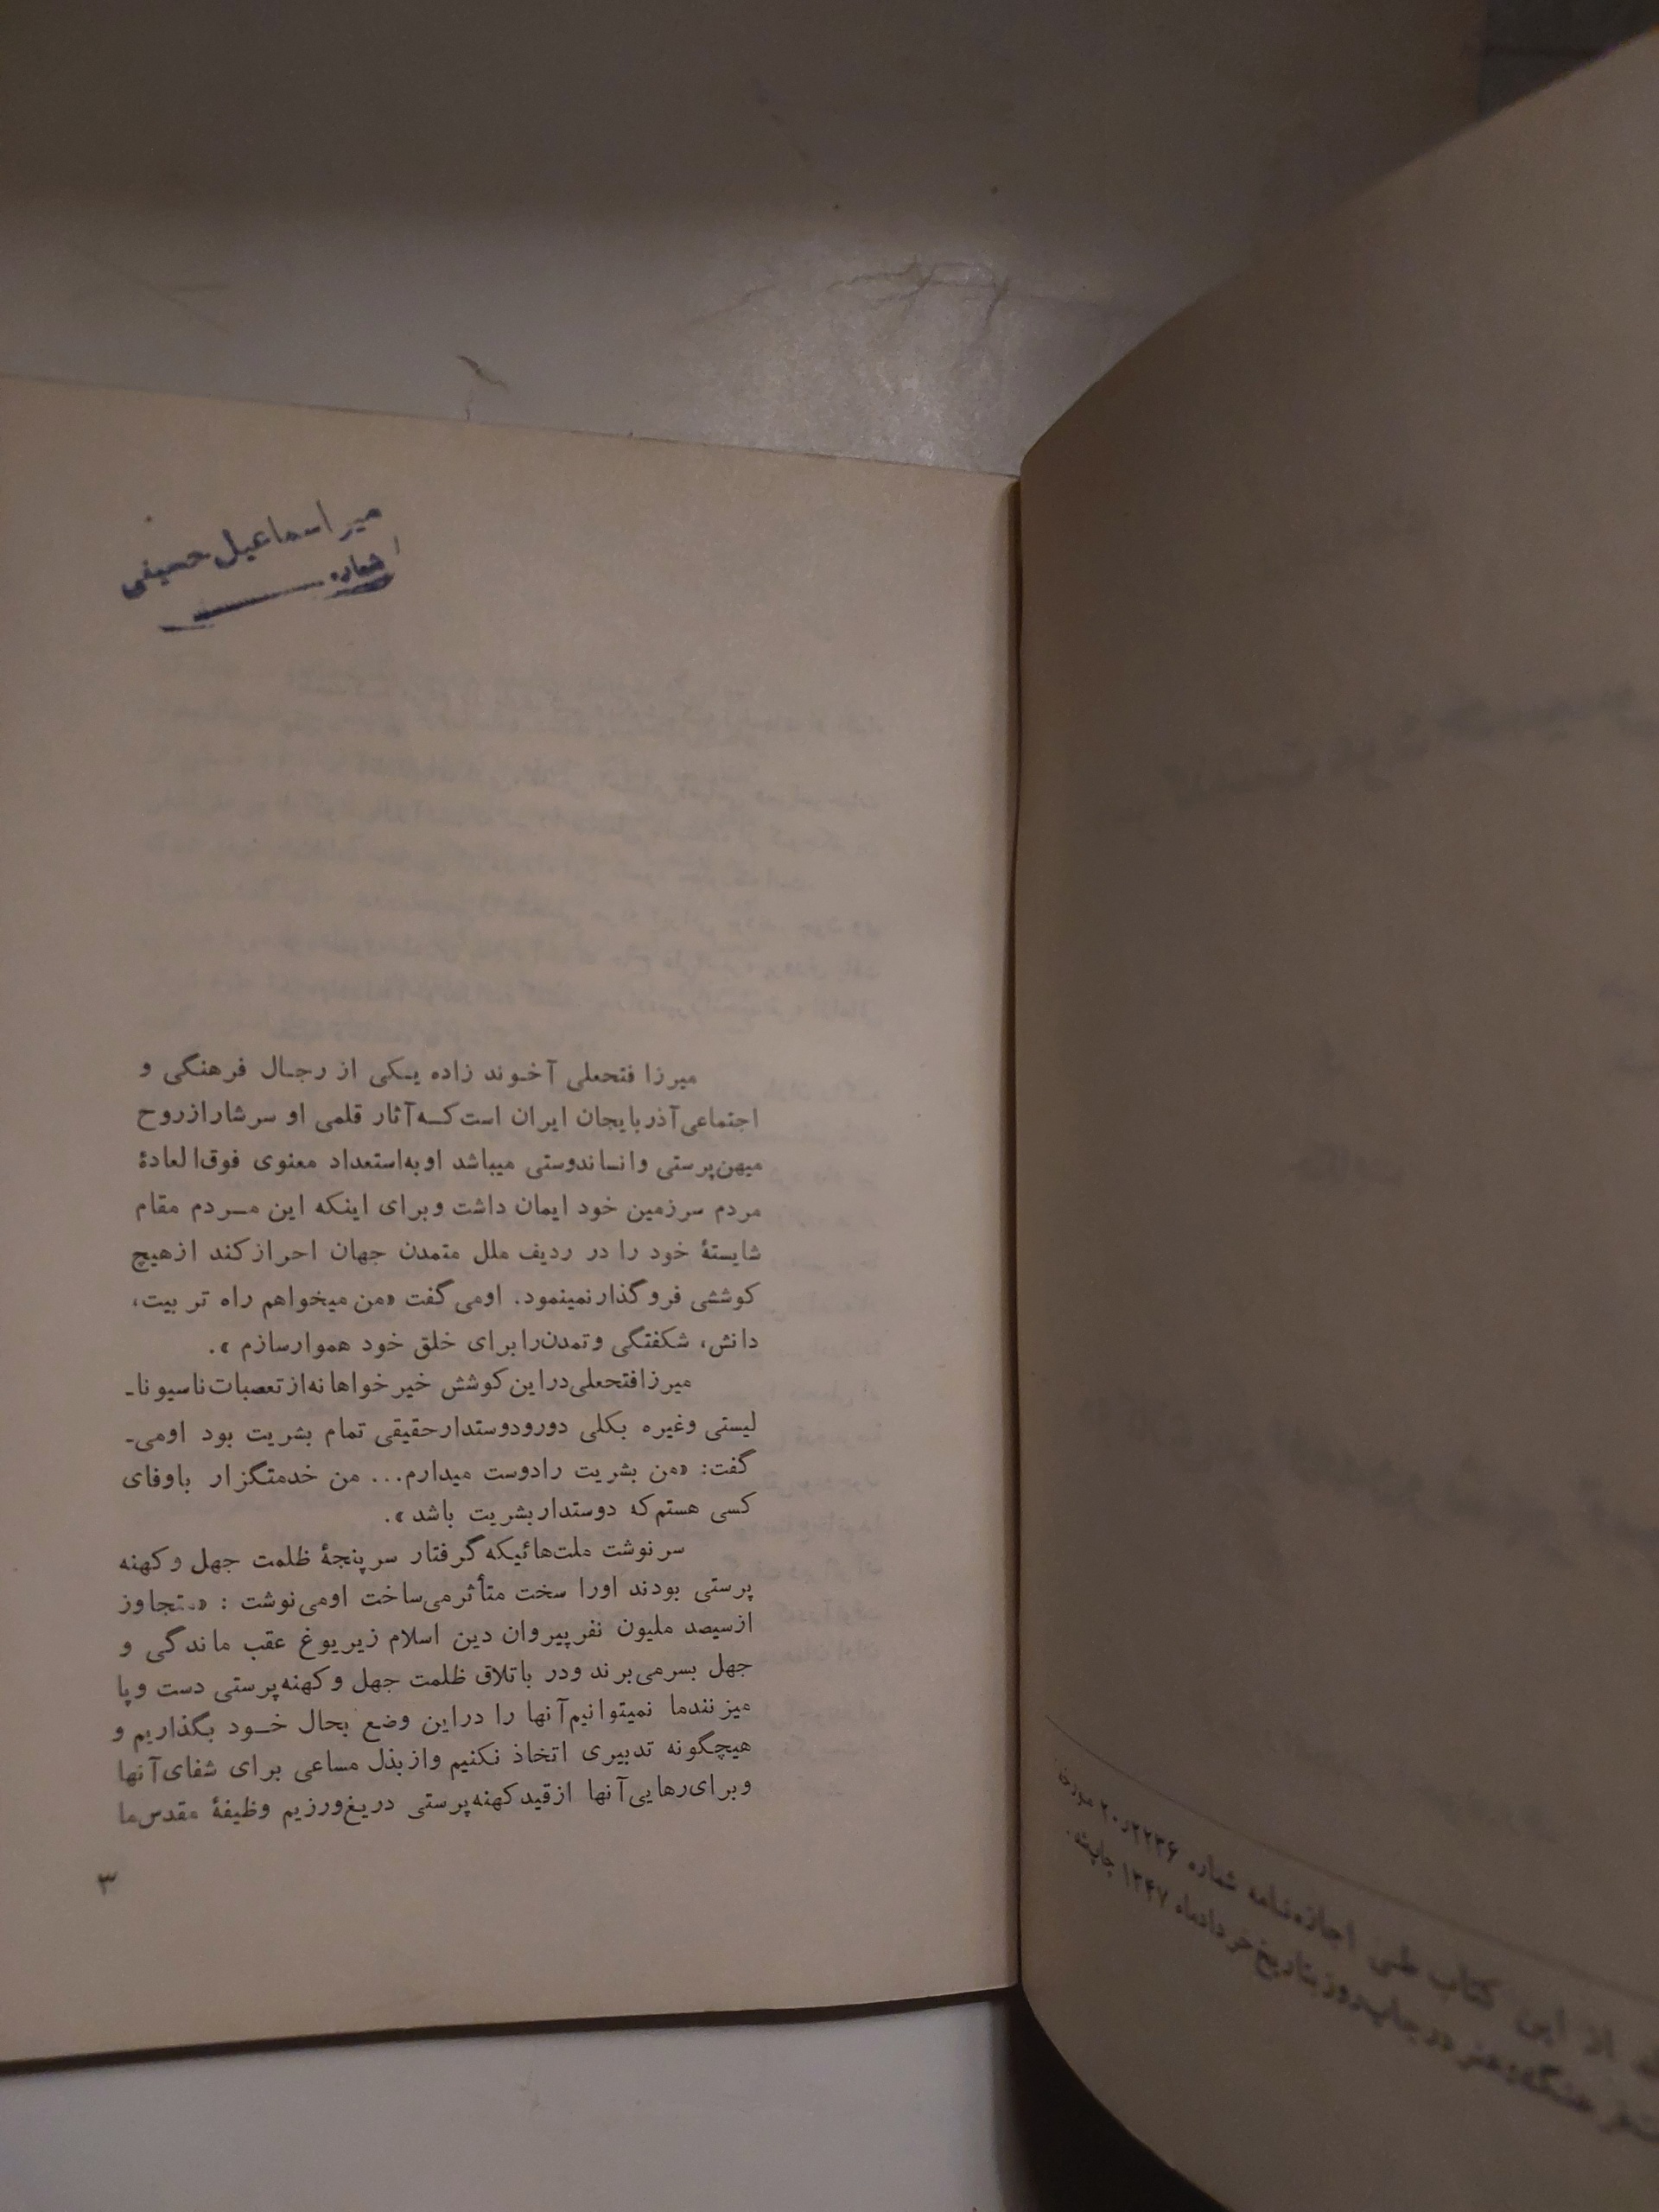 میر اسماعیل حسینی
شماره
میرزا فتحعلی آخوند زاده یکی از رجال فرهنگی و
اجتماعی آذربایجان ایران است که آثار قلمی او سرشار از روح
میهن‌پرستی و انساندوستی میباشد او به استعداد معنوی فوق‌العادهٔ
مردم سرزمین خود ایمان داشت و برای اینکه این مردم مقام
شایستهٔ خود را در ردیف ملل متمدن جهان احراز کند از هیچ
کوششی فروگذار نمینمود. او می گفت «من میخواهم راه تربیت،
دانش، شکفتگی و تمدن را برای خلق خود هموار سازم».
میرزا فتحعلی در این کوشش خیرخواهانه از تعصبات ناسیونا-
لیستی وغیره بکلی دور و دوستدار حقیقی تمام بشریت بود او می-
گفت: «من بشریت را دوست میدارم... من خدمتگزار باوفای
کسی هستم که دوستدار بشریت باشد».
سرنوشت ملت‌هائیکه گرفتار سرپنجهٔ ظلمت جهل و کهنه
پرستی بودند او را سخت متأثر می‌ساخت او می نوشت : «متجاوز
از سیصد ملیون نفر پیروان دین اسلام زیر یوغ عقب ماندگی و
جهل بسر می‌برند و در باتلاق ظلمت جهل و کهنه‌پرستی دست و پا
میزنند ما نمیتوانیم آنها را در این وضع بحال خود بگذاریم و
هیچگونه تدبیری اتخاذ نکنیم و از بذل مساعی برای شفای آنها
و برای رهایی آنها از قید کهنه‌پرستی دریغ ورزیم وظیفهٔ مقدس ما
۳
این کتاب طی اجازه‌نامه شماره مورخه
خردادماه ۱۳۴۷ چاپ